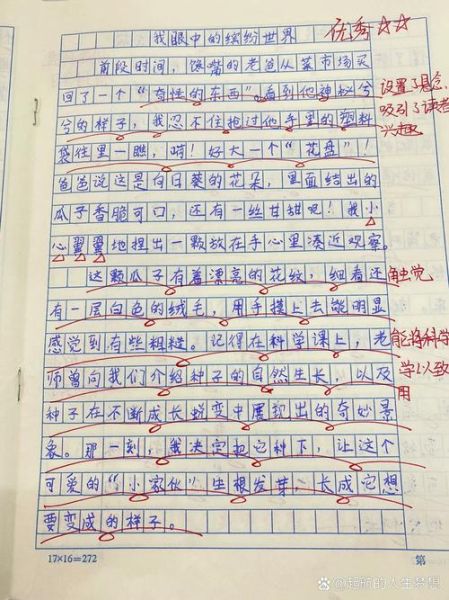 优秀☆☆
我眼中的缤纷世界
前段时间，馋嘴的老爸从菜市场买
回了一个“奇怪的东西”。看到他神秘兮
兮的样子，我忍不住抢过他手里的塑料
袋往里一瞧，嗬！好大一个“花盘”！
爸爸说这是向日葵的花朵，里面结出的
瓜子香脆可口，还有一丝甘甜呢！我小
心翼翼地捏出一颗放在手心里凑近观察。
这颗瓜子有着漂亮的花纹，细看还
有一层白色的绒毛，用手摸上去能明显
感觉到有些粗糙。记得在科学课上，老
师曾向我们介绍种子的自然生长，以及
种子在不断成长蜕变中展现出的奇妙景
象。那一刻，我决定把它种下，让这个
可爱的“小家伙”生根发芽，长成它想
要变成的样子。
设置了悬念，
吸引了读者
兴趣
触觉
能将科学
学以致
用
17×16=272
第